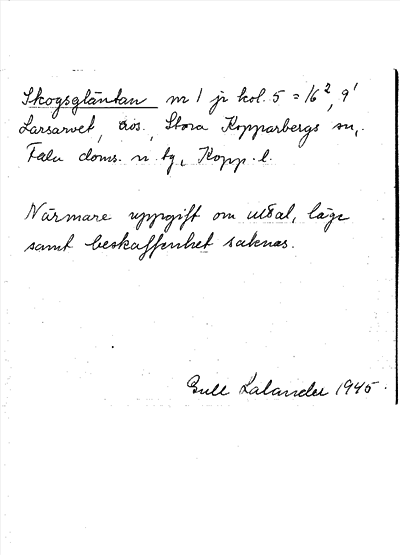 Skogsgläntan nr 1 jr kol. 5 = 16², 9'
Larsarvet, äos., Stora Kopparbergs sn,
Falu doms. n. tg, Kopp. l.
Närmare uppgift om uttal, läge
samt beskaffenhet saknas.
Gull Lalander 1945.